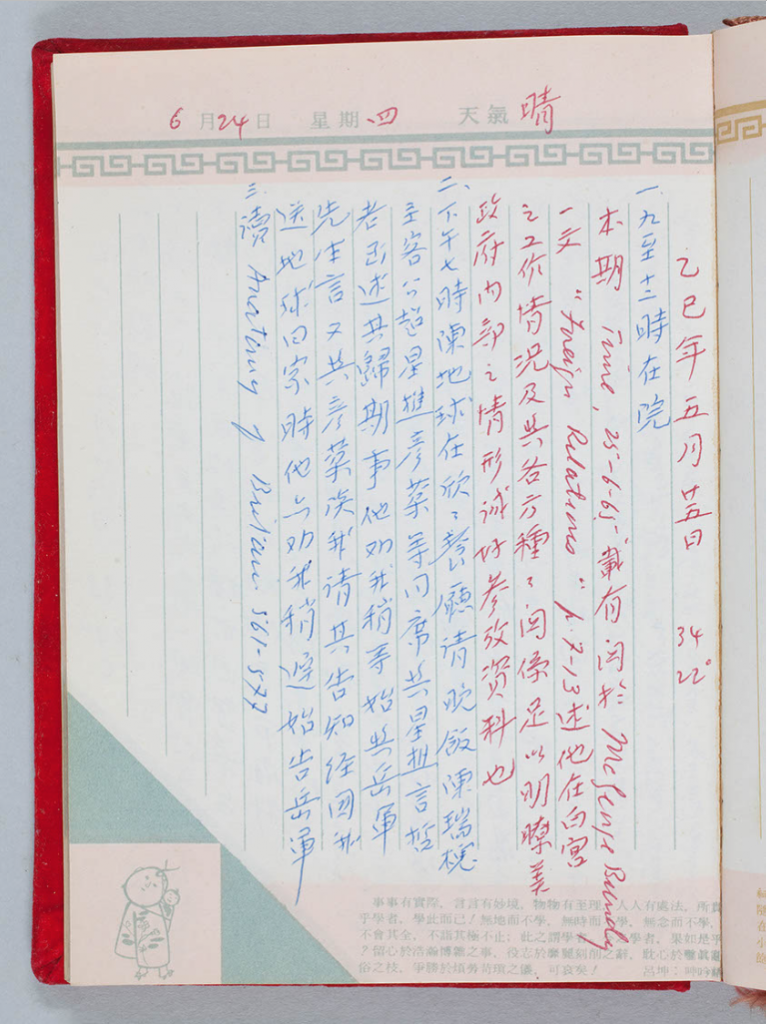 6月24日 星期四 天氣 晴
乙巳年五月廿五日 34 22°
一、九至十二時在院
本期 Time, 25-6-65 載有関於 McGeorge Bundy
一文 "Foreign Relations" p.7-13 述他在白宮
之工作情況及與各方種〻関係足以明瞭美
政府內部之情形誠好參攷資料也
二、下午七時陳地球在欣〻餐廳請晚飯陳瑞
主客公超星 彦棻等同席與星 言哲
老函述其歸期事他劝我稍等始與岳軍
先生言又與彦棻談我請其告知經国我
送地球回家時他亦劝我稍 始告岳軍
三、讀 of Britain 561-577
事事有實際，言言有妙境，物物有至理，人人有處法，所貴
乎學者，學此而已！無地而不學，無時而 學，無念而不學，
不會其全、不詣其極不止；此之謂學者。 學者，果如是乎
？留心於浩瀚博雜之事，役志於靡麗刻削之辭，耽心於
俗之技，爭勝於煩勞苛瑣之儀，可哀矣！ 呂坤：呻吟